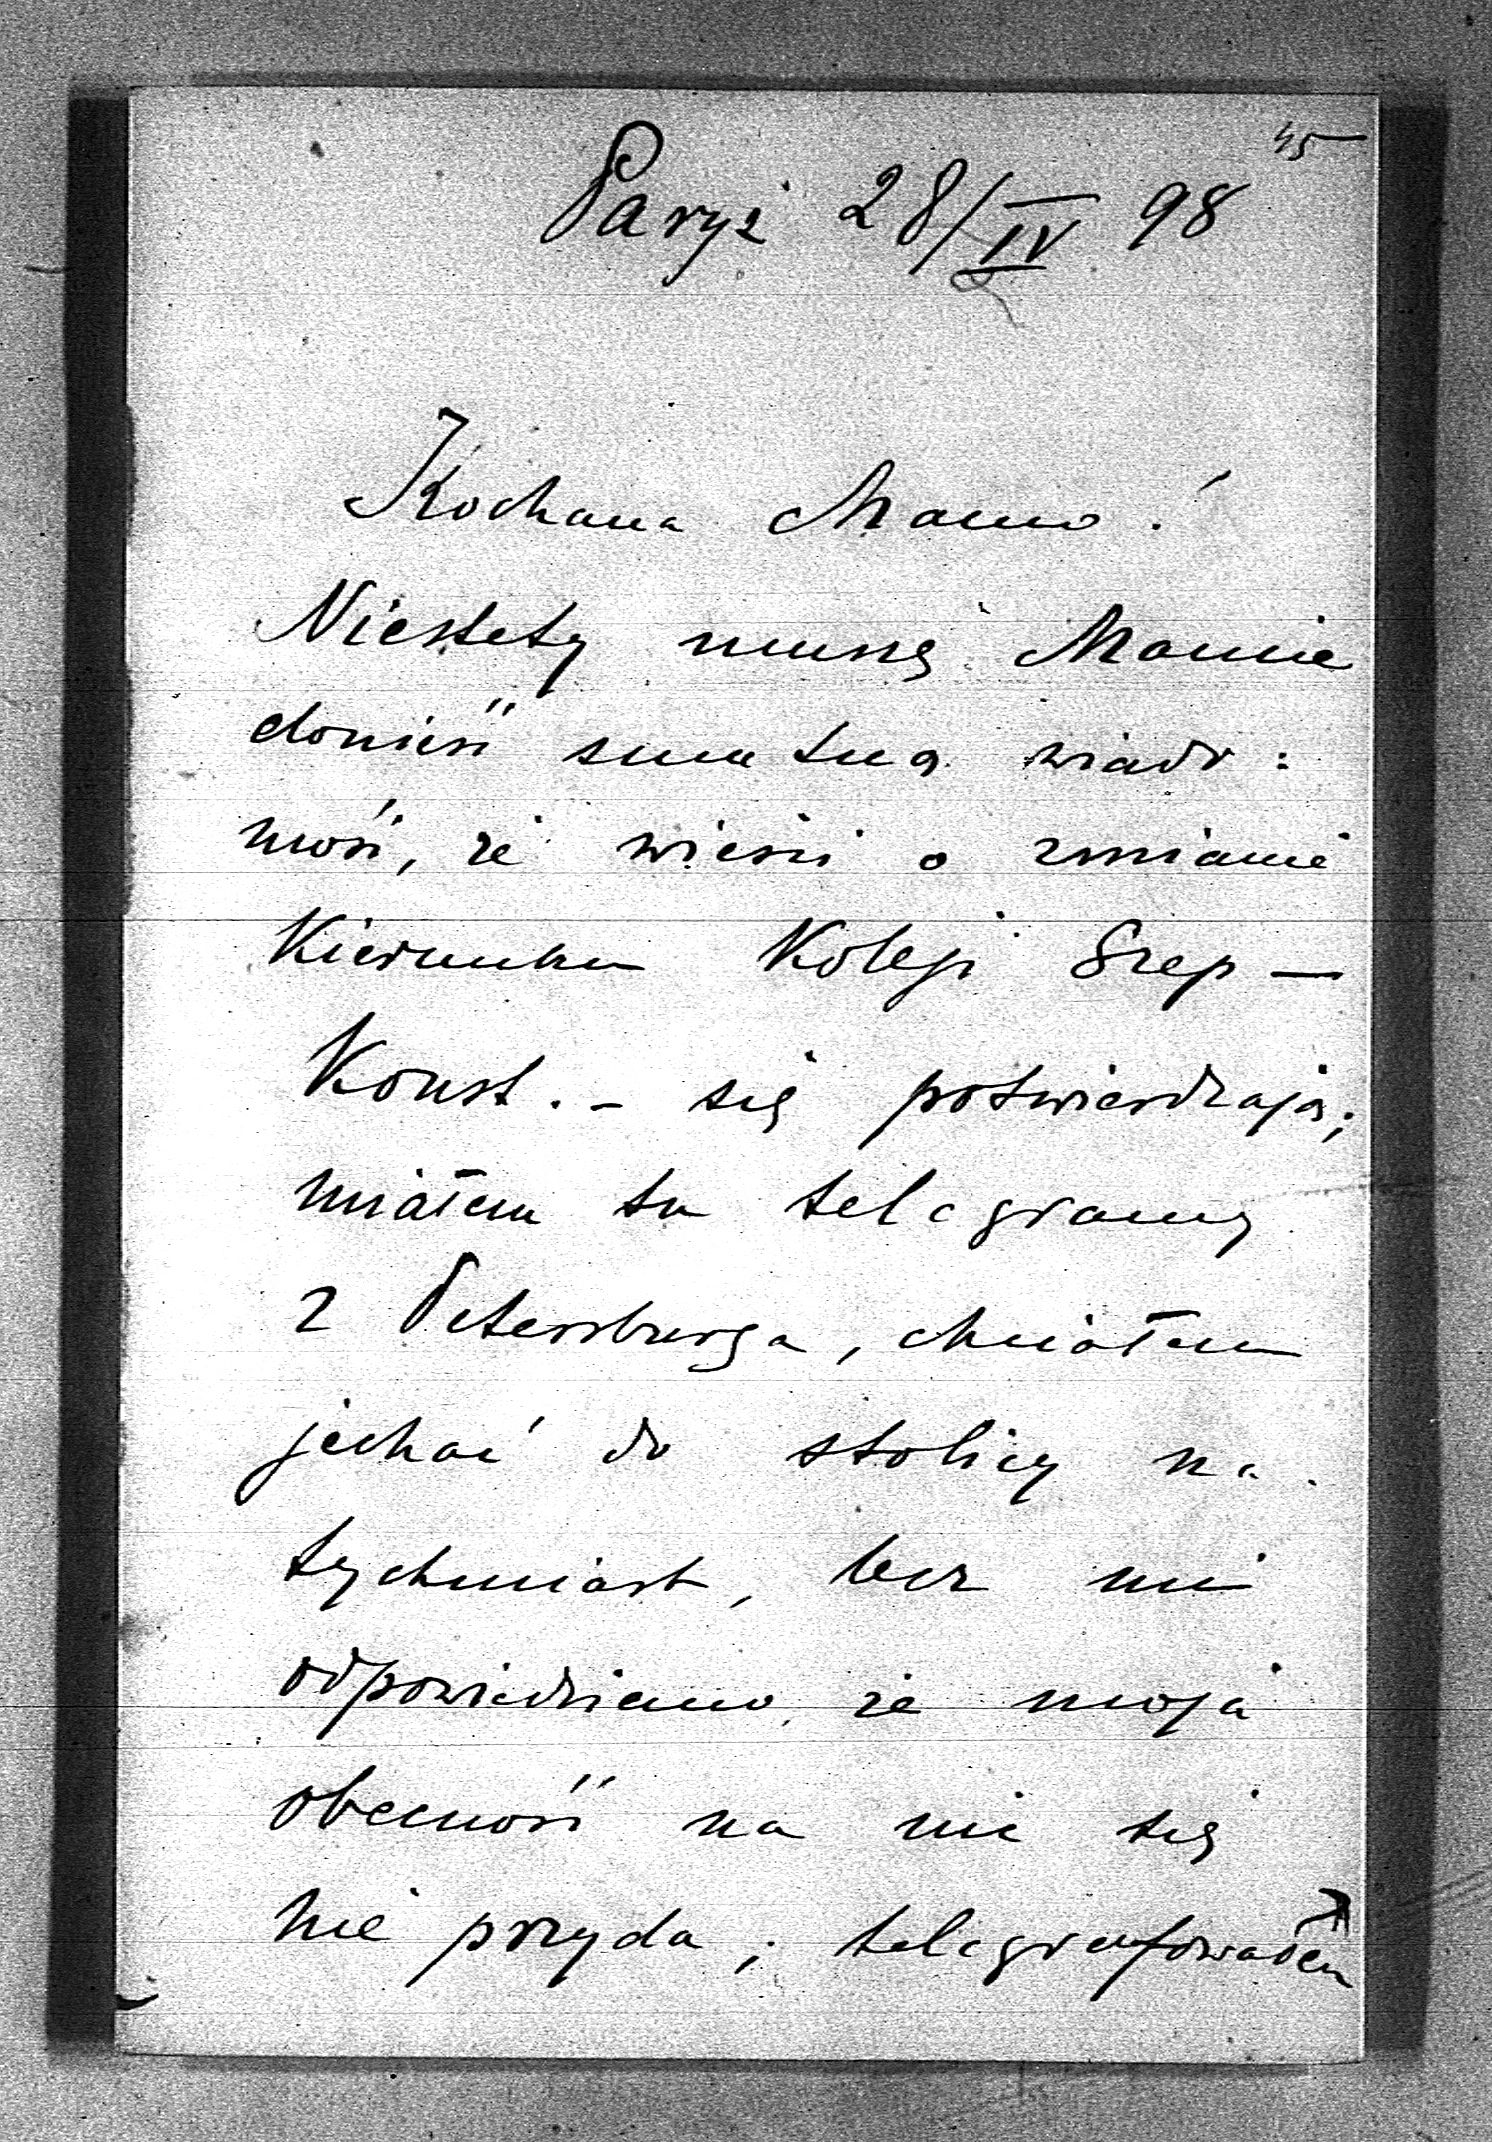 45
Paryż 28/IV 98
Kochana Mamo!
Niestety muszę Mamie
donieść smutną wiado:
mość, że wieści o zmianie
Kierunku Koleji Szep-
Konst. - się potwierdzają;
miałem tu telegramy
z Petersburga, chciałem
jechać do stolicy na.
tychmiast, lecz mi
odpowiedziano, że moja
obecność na nic się
nie przyda; telegrafowałem